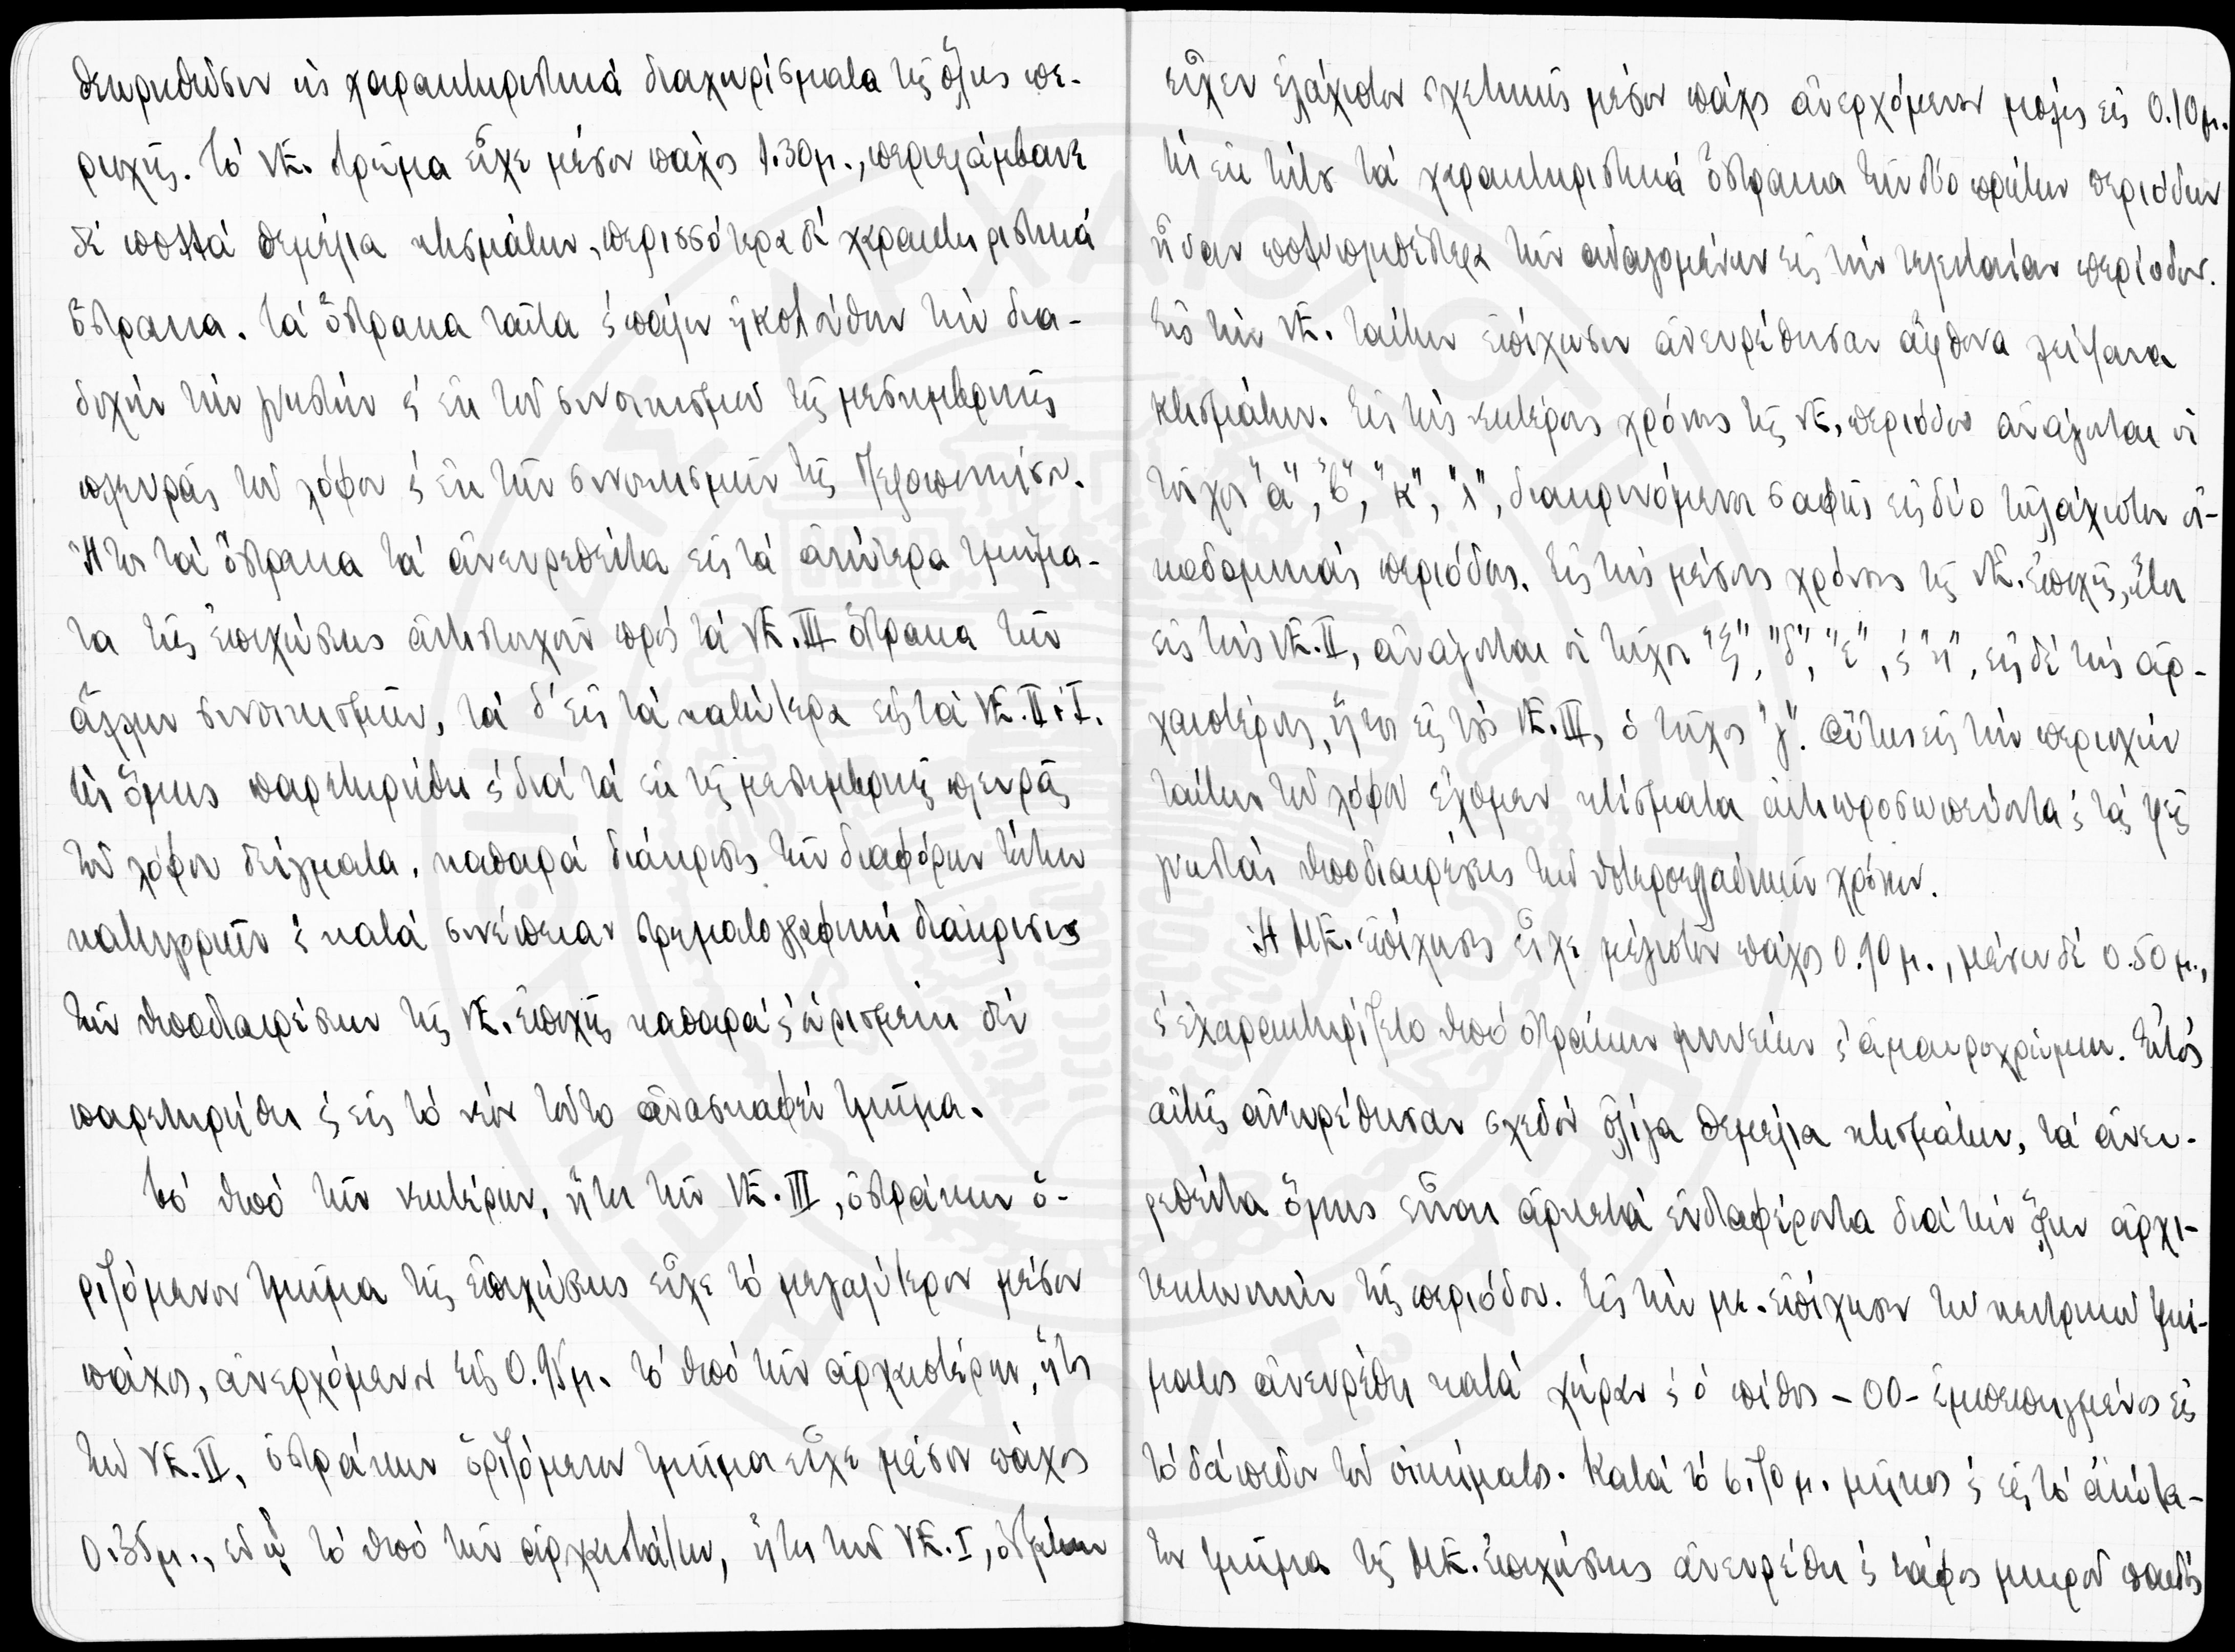 θεωρηθῶσιν ὡς χαρακτηριστικά διαχωρίσματα τῆς ὅλης πε-
ριοχῆς. Τό ΥΕ. στρῶμα εἶχε μέσον πάχος 1.30μ., περιελάμβανε
δέ πολλά θεμέλια κτισμάτων, περισσότερα δέ χαρακτηριστικά
ὄστρακα. Τά ὄστρακα ταῦτα ϛ πάλιν ἠκολούθουν τήν δια-
δοχήν τήν γνωστήν ϛ ἐκ τοῦ συνοικισμοῦ τῆς μεσημβρινῆς
πλευρᾶς τοῦ λόφου ϛ ἐκ τῶν συνοικισμῶν τῆς Πελοποννήσου.
Ἤτοι τά ὄστρακα τά ἀνευρεθέντα εἰς τά ἀνώτερα τμήμα-
τα τῆς ἐπιχώσεως ἀντιστοιχοῦν πρός τά ΥΕ.III ὄστρακα τῶν
ἄλλων συνοικισμῶν, τά δ' εἰς τά κατώτερα εἰς τά ΥΕ.II ϛ I.
Ὡς ὅμως παρετηρήθη ϛ διά τά ἐκ τῆς μεσημβρινῆς πλευρᾶς
τοῦ λόφου δείγματα, καθαρά διάκρισις τῶν διαφόρων τούτων
κατηγοριῶν ϛ κατά συνέπειαν στρωματογραφική διάκρισις
τῶν ὑποδιαιρέσεων τῆς ΥΕ. ἐποχῆς καθαρά ϛ ὡρισμένη δέν
παρετηρήθη ϛ εἰς τό νῦν τοῦτο ἀνασκαφέν τμῆμα.
Τό ὑπό τῶν νεωτέρων, ἤτοι τῶν ΥΕ.III, ὀστράκων ὁ-
ριζόμενον τμῆμα τῆς ἐπιχώσεως εἶχε τό μεγαλύτερον μέσον
πάχος, ἀνερχόμενον εἰς 0.95μ. τό ὑπό τῶν ἀρχαιοτέρων, ἤτοι
τῶν ΥΕ.II, ὀστράκων ὁριζόμενον τμῆμα εἶχε μέσον πάχος
0.35μ., ἐνῷ τό ὑπό τῶν ἀρχαιοτάτων, ἤτοι τῶν ΥΕ.I, ὀστράκων
εἶχεν ἐλάχιστον σχετικῶς μέσον πάχος ἀνερχόμενον μόλις εἰς 0.10μ.
Ὡς ἐκ τούτου τά χαρακτηριστικά ὄστρακα τῶν δύο πρώτων περιόδων
ἦσαν πολυπληθέστερα τῶν ἀναγομένων εἰς τήν τελευταίαν περίοδον.
Εἰς τήν ΥΕ. ταύτην ἐπίχωσιν ἀνευρέθησαν ἄφθονα λείψανα
κτισμάτων. Εἰς τούς νεωτέρους χρόνους τῆς ΥΕ. περιόδου ἀνάγονται οἱ
τοῖχοι "α", "β", "κ", "λ", διακρινόμενοι σαφῶς εἰς δύο τοὐλάχιστον οἰ-
κοδομικάς περιόδους. Εἰς τούς μέσους χρόνους τῆς ΥΕ. ἐποχῆς, ἤτοι
εἰς τούς ΥΕ.II, ἀνάγονται οἱ τοῖχοι "ξ", "δ", "ε", ϛ "η", εἰς δέ τούς ἀρ-
χαιοτέρους, ἤτοι εἰς τούς ΥΕ.III, ὁ τοῖχος "γ". Οὕτως εἰς τήν περιοχήν
ταύτην τοῦ λόφου ἔχομεν κτίσματα ἀντιπροσωπεύοντα ϛ τάς τρεῖς
γνωστάς ὑποδιαιρέσεις τῶν ὑστεροελλαδικῶν χρόνων.
Ἡ ΜΕ. ἐπίχωσις εἶχε μέγιστον πάχος 0.90μ., μέσον δέ 0.50μ.,
ϛ ἐχαρακτηρίζετο ὑπό ὀστράκων μινυείων ϛ ἀμαυροχρώμων. Ἐντός
αὐτῆς ἀνευρέθησαν σχεδόν ὀλίγα θεμέλια κτισμάτων, τά ἀνευ-
ρεθέντα ὅμως εἶναι ἀρκετά ἐνδιαφέροντα διά τήν ὅλην ἀρχι-
τεκτονικήν τῆς περιόδου. Εἰς τήν με. ἐπίχωσιν τοῦ κεντρικοῦ τμή-
ματος ἀνευρέθη κατά χώραν ϛ ὁ πίθος – 00 – ἐμπεπηγμένος εἰς
τό δάπεδον τοῦ οἰκήματος. Κατά τό 6.70μ. μῆκος ϛ εἰς τό ἀνώτα-
τον τμῆμα τῆς ΜΕ. ἐπιχώσεως ἀνευρέθη ϛ τάφος μικροῦ παιδός